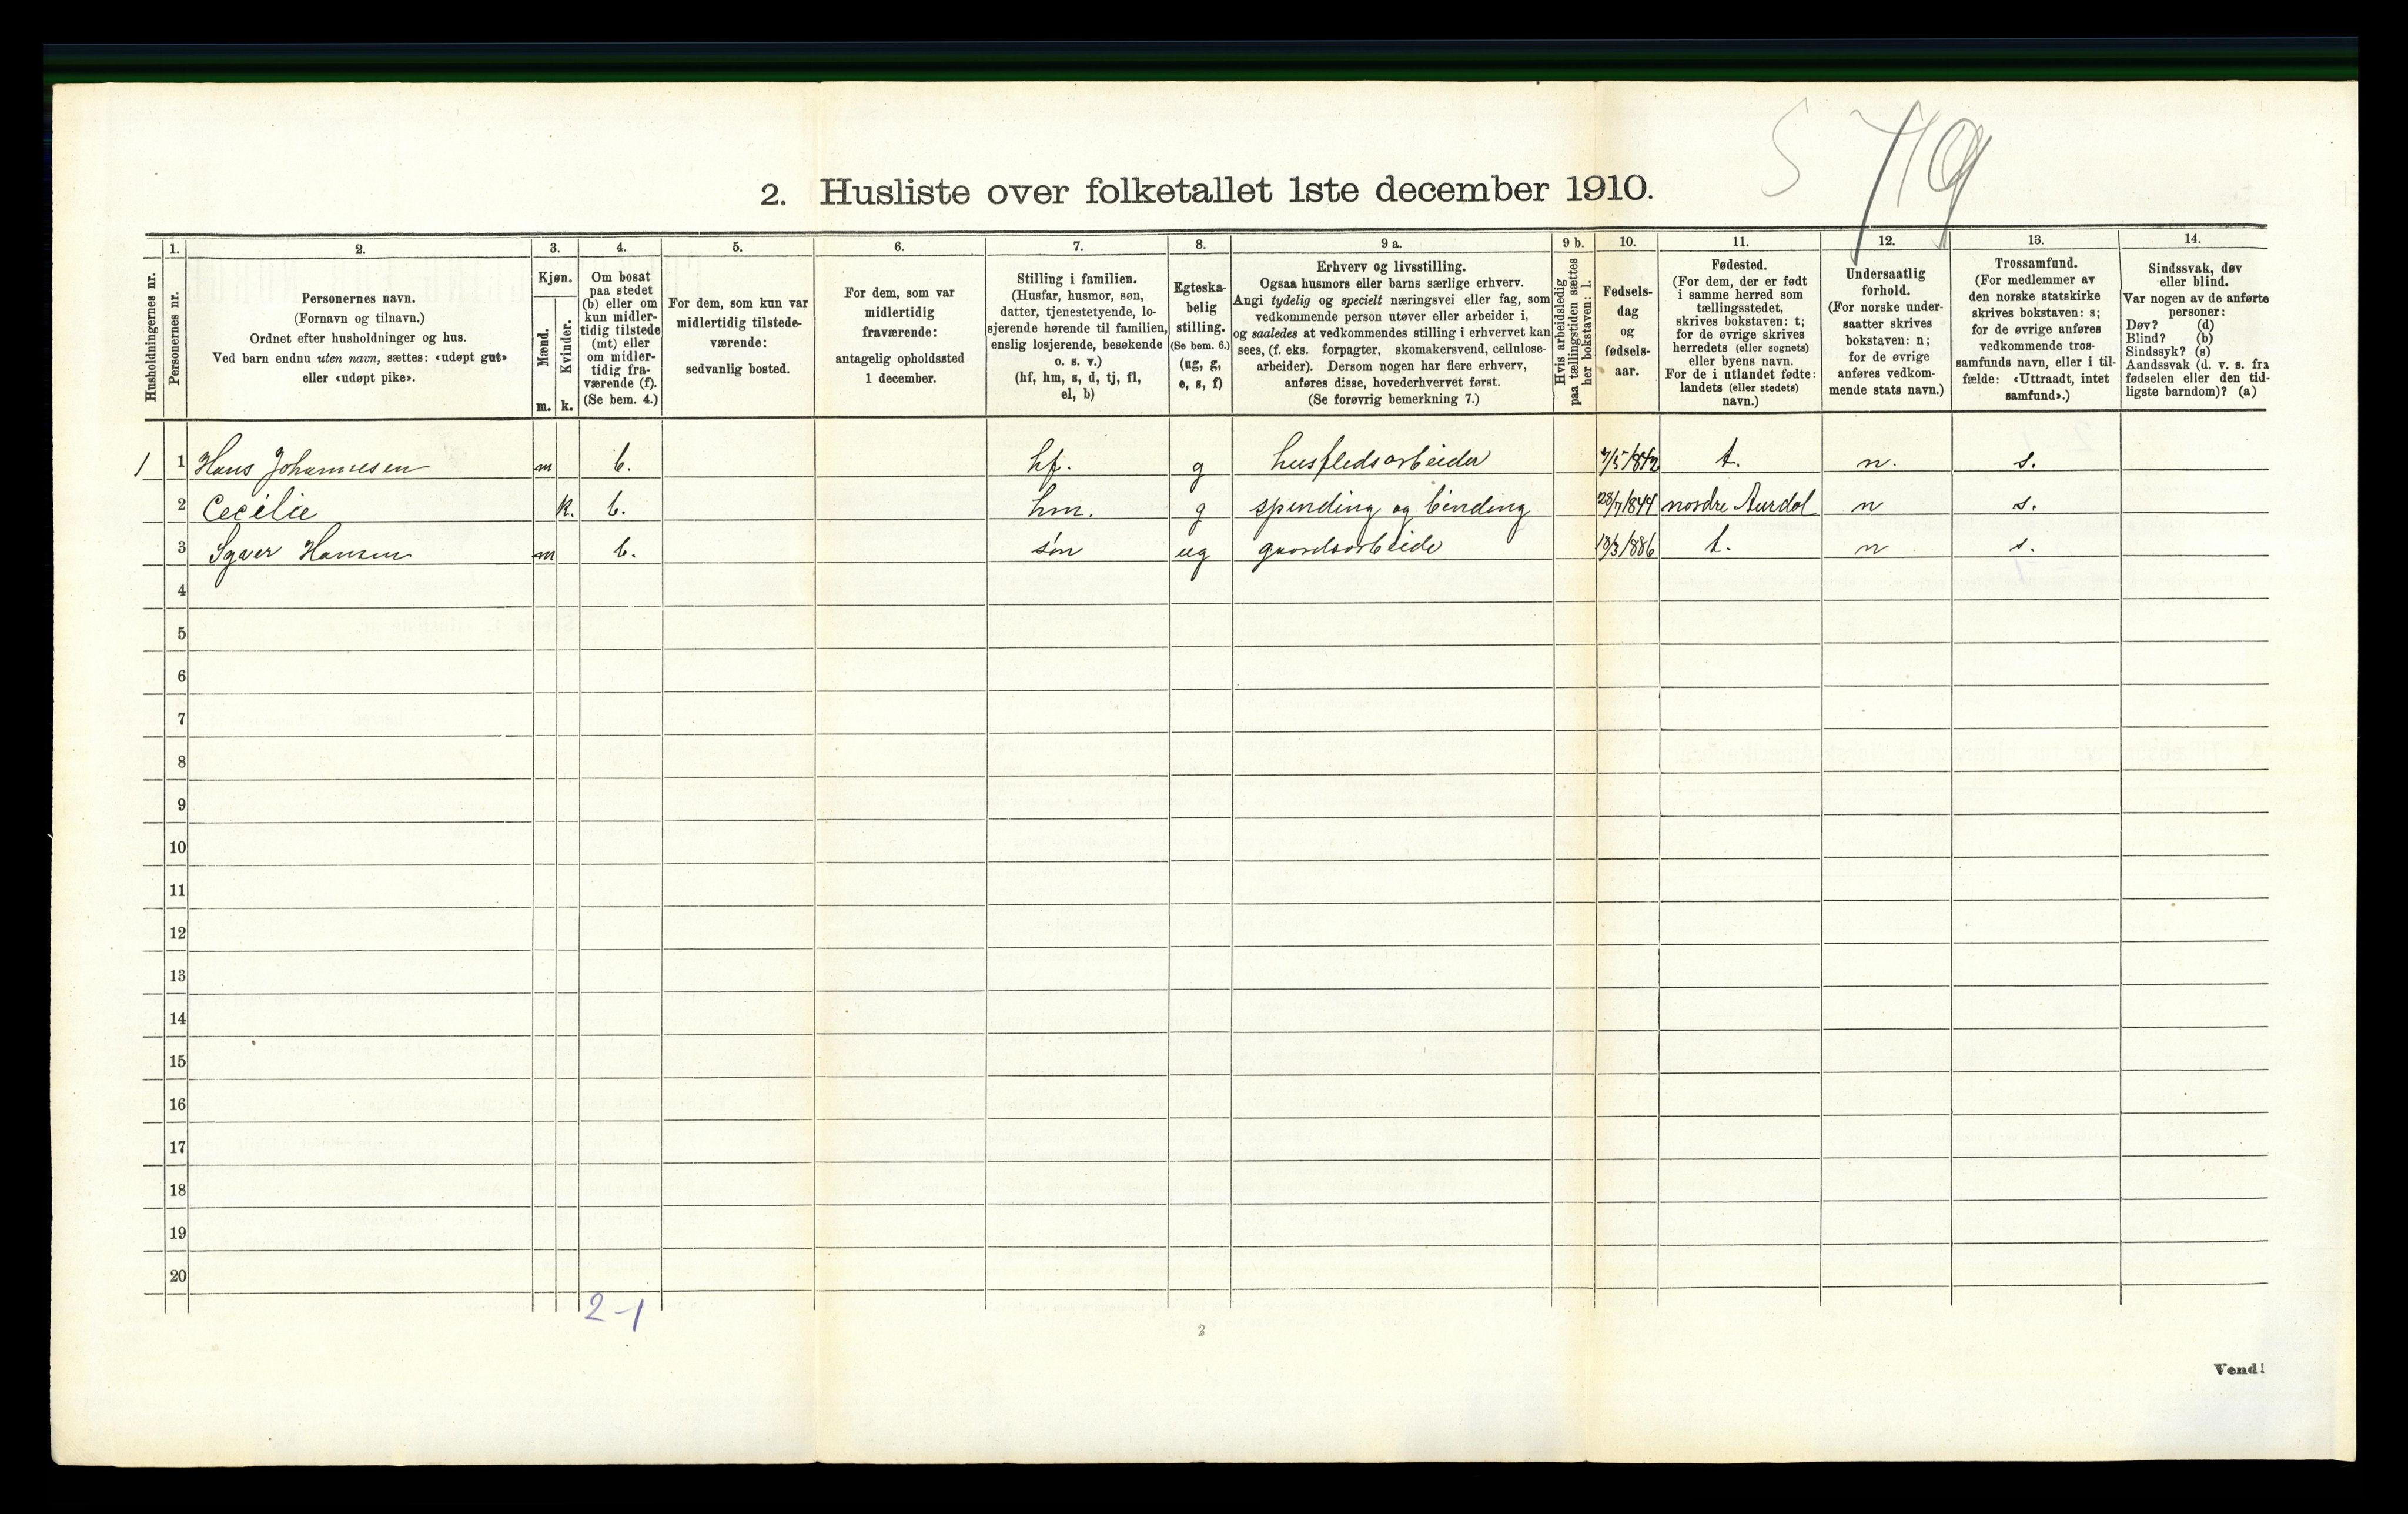 2. Husliste over folketallet 1ste december 1910.
1. 2. 3. 4. 5. 6. 7. 8. 9 a. 9 b. 10. 11. 12. 13. 14.
Husholdningernes nr.
Personernes nr.
Personernes navn.
(Fornavn og tilnavn.)
Ordnet efter husholdninger og hus.
Ved barn endnu uten navn, sættes: «udøpt gut»
eller «udøpt pike».
Kjøn.
Mænd.
Kvinder.
m. k.
Om bosat
paa stedet
(b) eller om
kun midler-
tidig tilstede
(mt) eller
om midler-
tidig fra-
værende (f).
(Se bem. 4.)
For dem, som kun var
midlertidig tilstede-
værende:
sedvanlig bosted.
For dem, som var
midlertidig
fraværende:
antagelig opholdssted
1 december.
Stilling i familien.
(Husfar, husmor, søn,
datter, tjenestetyende, lo-
sjerende hørende til familien,
enslig losjerende, besøkende
o. s. v.)
(hf, hm, s, d, tj, fl,
el, b)
Egteska-
belig
stilling.
(Se bem. 6.)
(ug, g,
e, s, f)
Erhverv og livsstilling.
Ogsaa husmors eller barns særlige erhverv.
Angi tydelig og specielt næringsvei eller fag, som
vedkommende person utøver eller arbeider i,
og saaledes at vedkommendes stilling i erhvervet kan
sees, (f. eks. forpagter, skomakersvend, cellulose-
arbeider). Dersom nogen har flere erhverv,
anføres disse, hovederhvervet først.
(Se forøvrig bemerkning 7.)
Hvis arbeidsledig
paa tællingstiden sættes
her bokstaven: l.
Fødsels-
dag
og
fødsels-
aar.
Fødested.
(For dem, der er født
i samme herred som
tællingsstedet,
skrives bokstaven: t;
for de øvrige skrives
herredets (eller sognets)
eller byens navn.
For de i utlandet fødte:
landets (eller stedets)
navn.)
Undersaatlig
forhold.
(For norske under-
saatter skrives
bokstaven: n;
for de øvrige
anføres vedkom-
mende stats navn.)
Trossamfund.
(For medlemmer av
den norske statskirke
skrives bokstaven: s;
for de øvrige anføres
vedkommende tros-
samfunds navn, eller i til-
fælde: «Uttraadt, intet
samfund».)
Sindssvak, døv
eller blind.
Var nogen av de anførte
personer:
Døv? (d)
Blind? (b)
Sindssyk? (s)
Aandssvak (d. v. s. fra
fødselen eller den tid-
ligste barndom)? (a)
1 1 Hans Johannesen m b. hf. g husflidsarbeider 7/5 1842 t. n. s.
2 Cecilie k. b. hm. g spinding og binding 28/7 1844 nordre Aurdal n s.
3 Syver Hansen m b. søn ug gaardsarbeide 13/3 1886 t. n s.
4
5
6
7
8
9
10
11
12
13
14
15
16
17
18
19
20
2-1
2
Vend!